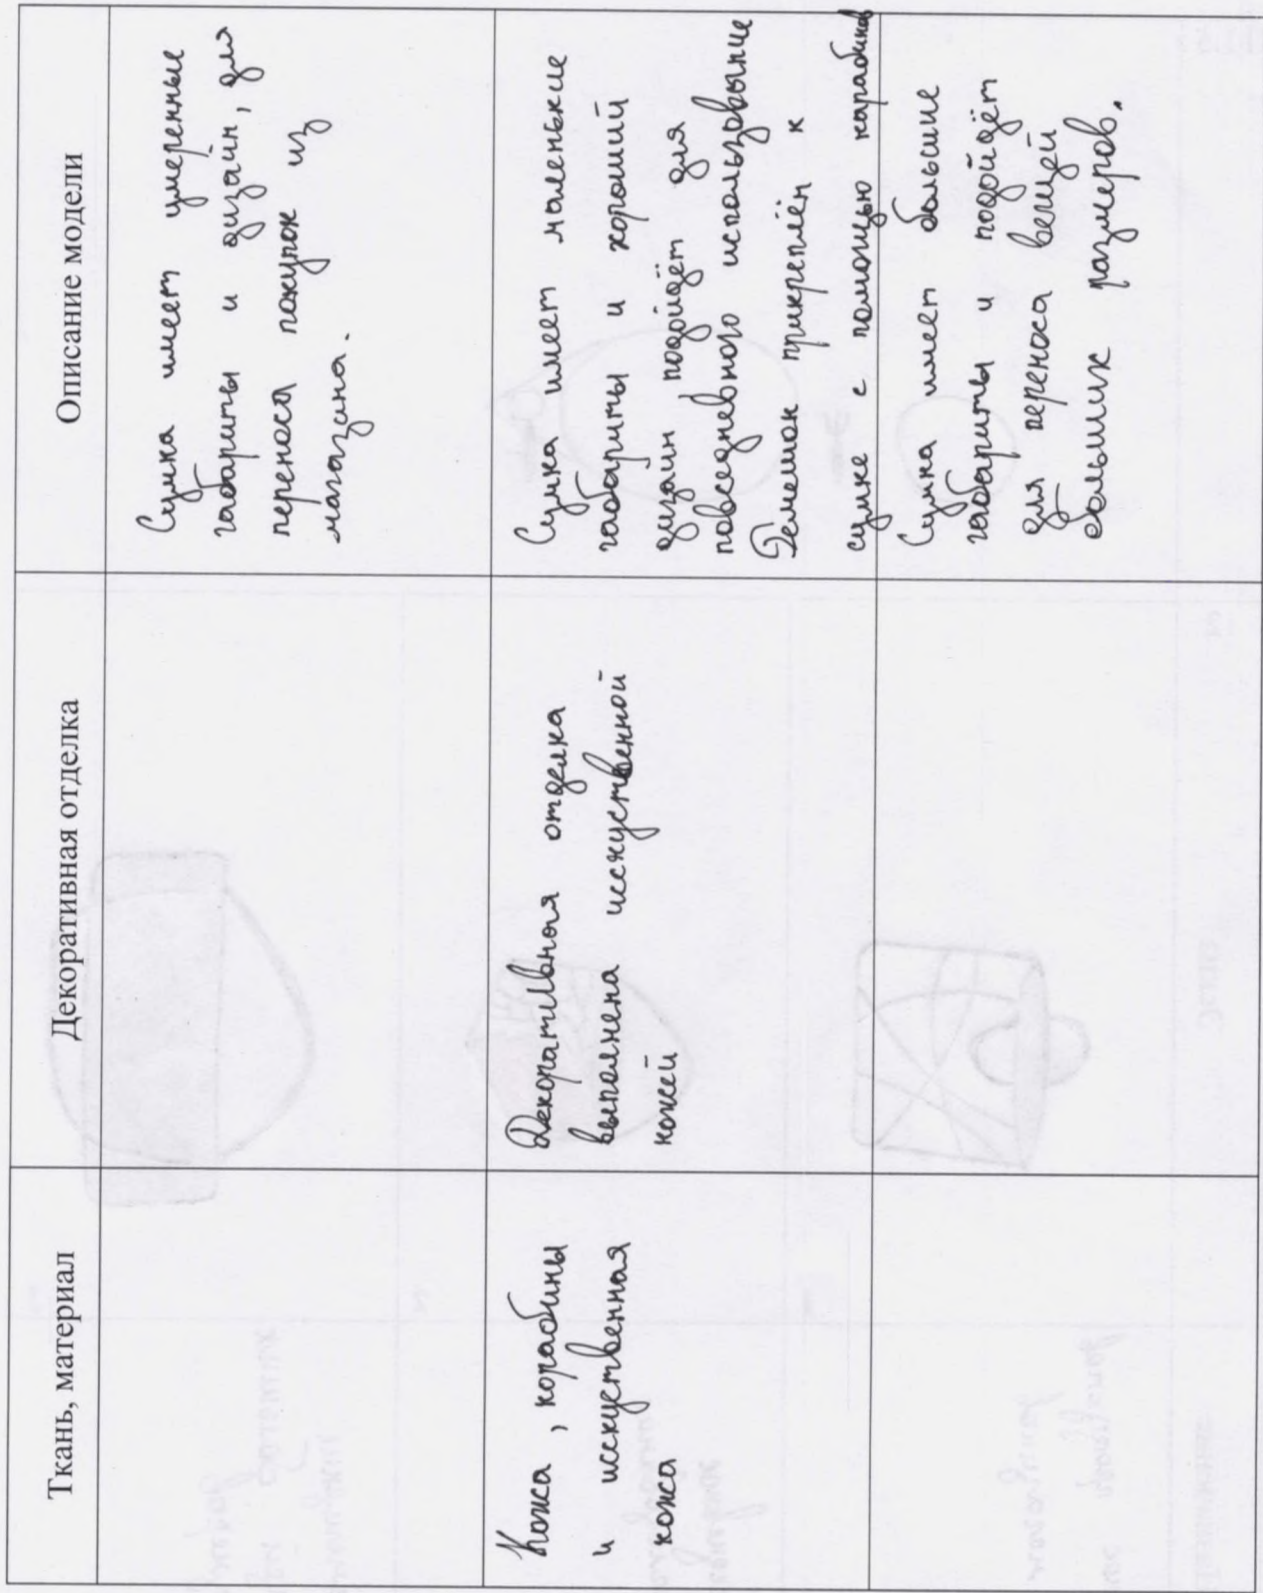 Ткань, материал
Декоративная отделка
Описание модели
Сумка имеет умеренные
габариты и дизайн, для
переноса покупок из
магазина.
Кожа, корабины
и исскуственная
кожа
Декоративная отделка
выполнена исскуственной
кожей
Сумка имеет маленькие
габариты и хороший
дизайн, подойдёт для
повседневного использовыние
Ремешок прикреплён к
сумке с помощью карабинов
Сумка имеет большие
габариты и подойдёт
для переноса вещей
больших размеров.